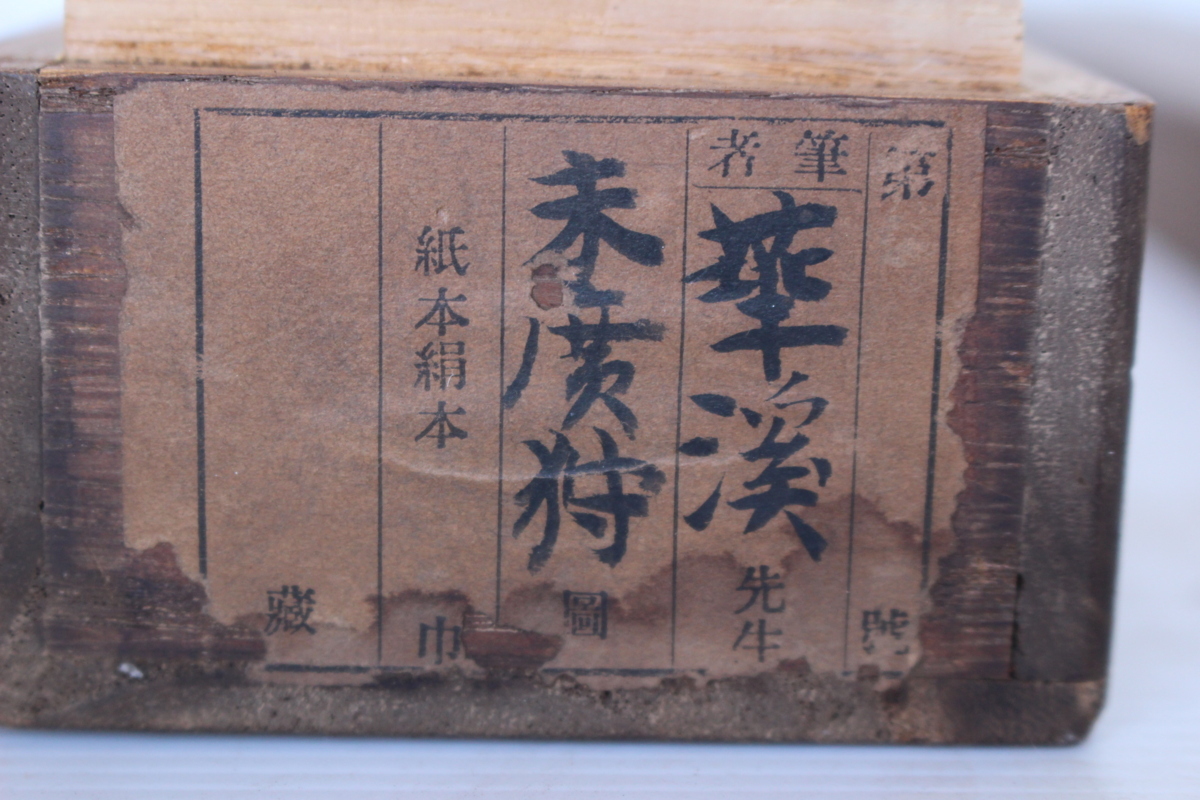 第 號
筆者
華溪 先生
未央廣狩 圖
紙本絹本 巾
藏